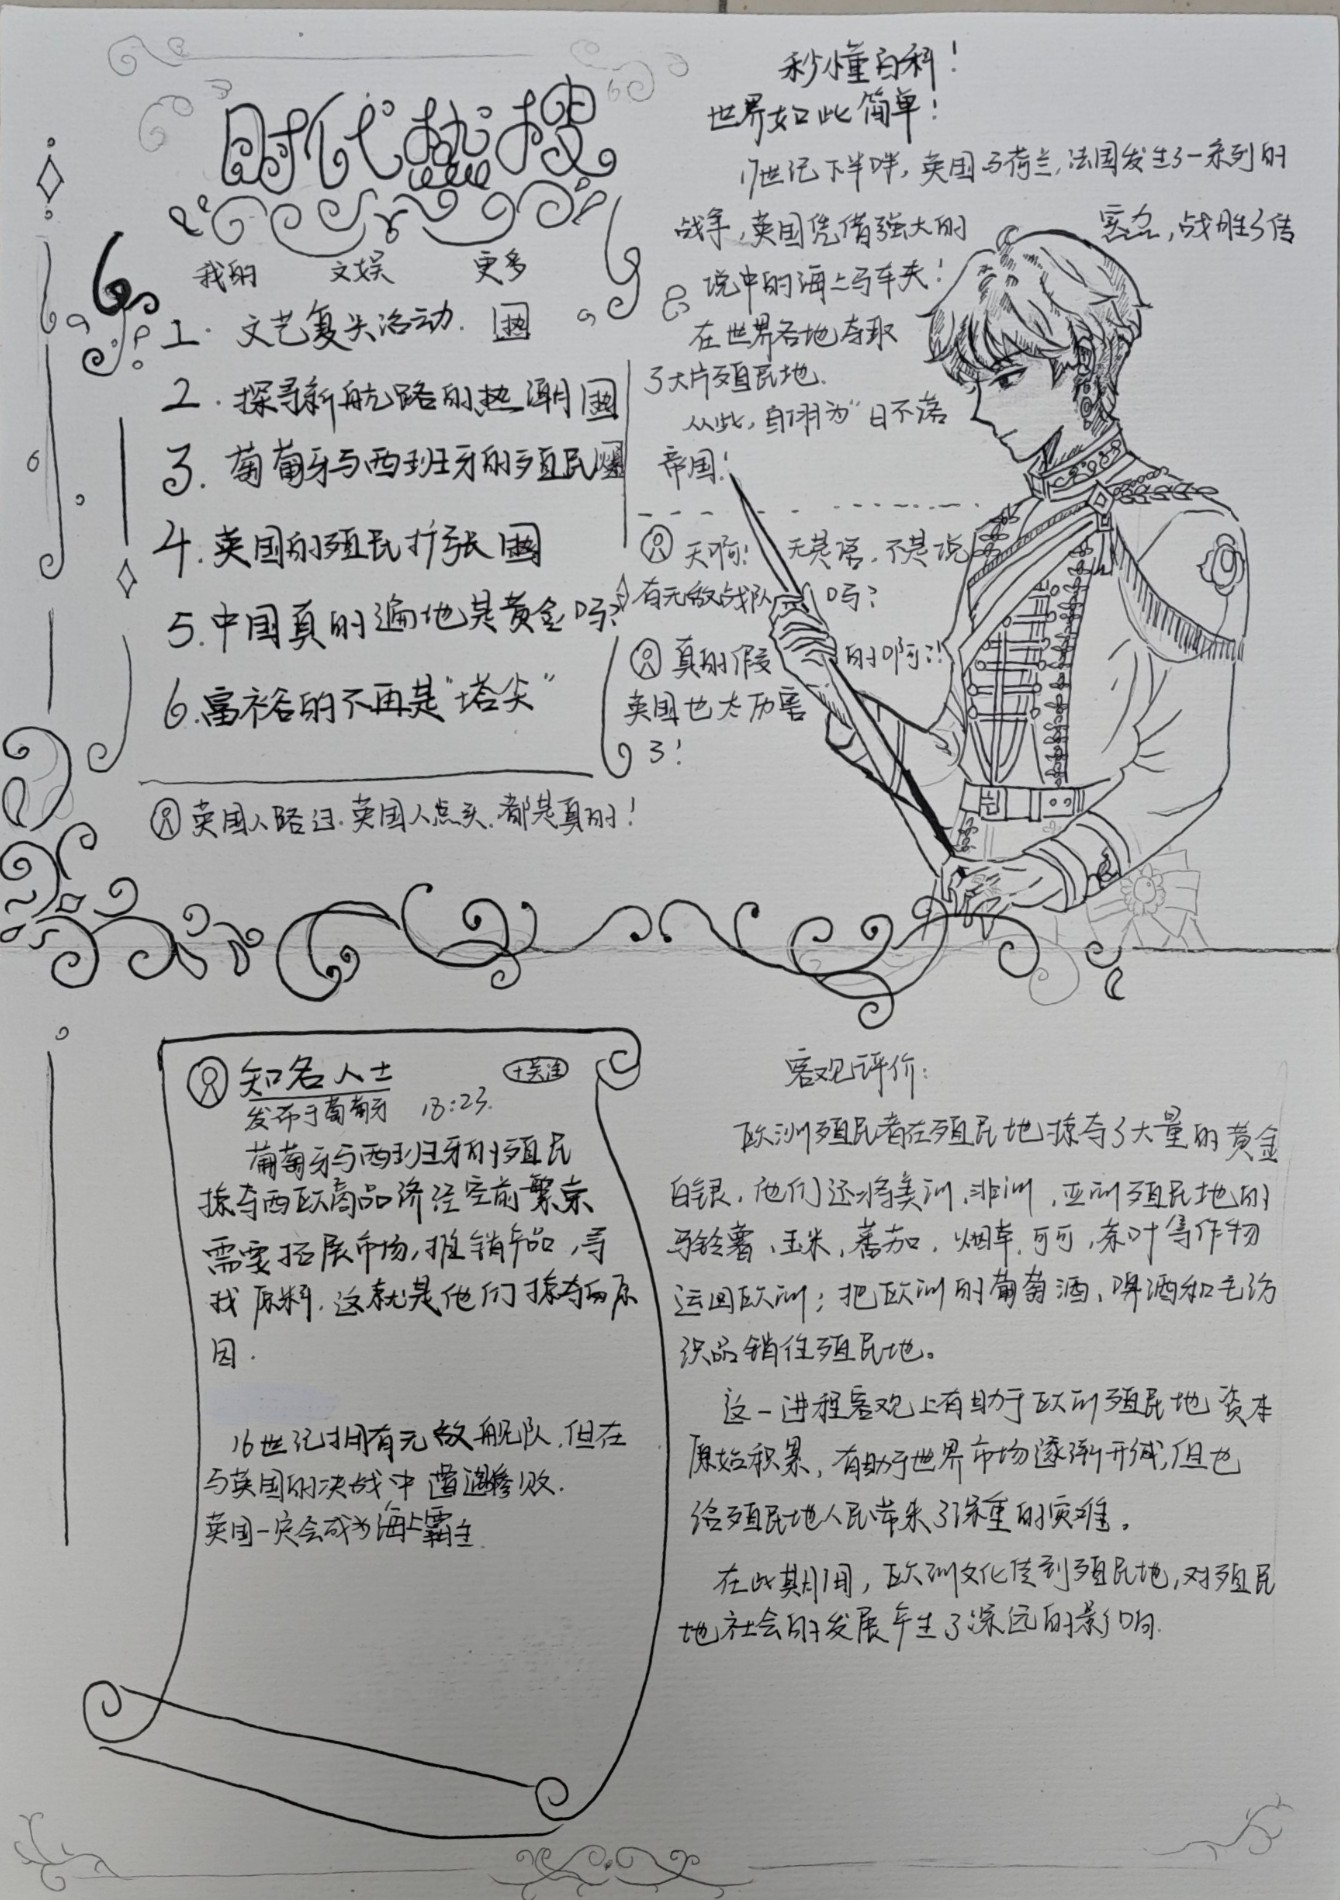 时代热搜
我的 文娱 更多
1. 文艺复兴活动. 热
2. 探寻新航路的热潮 热
3. 葡萄牙与西班牙的殖民 爆
4. 英国的殖民扩张 热
5. 中国真的遍地是黄金吗?
6. 富裕的不再是“塔尖”
英国人路过.英国人点头.都是真的!
秒懂百科!
世界如此简单!
17世纪下半叶,英国与荷兰,法国发生了一系列的
战争,英国凭借强大的 ,战胜了传
说中的海上马车夫!
在世界各地夺取
了大片殖民地.
从此,自诩为“日不落
帝国!
天啊! 无是语.不是说
有无敌战队 吗?
真的假 的啊?!
英国也太历害
了!
知名人士 +关注
发布于葡萄牙 18:23.
葡萄牙与西班牙的殖民
掠夺西欧商品济泾空前繁荣
需要拓展市场,推销产品,寻
找原料.这就是他们掠夺的原
因.
16世纪拥有无敌舰队.但在
与英国的决战中遭遇惨败.
英国一定会成为海上霸主.
客观评价:
欧洲殖民者在殖民地掠夺了大量的黄金
白银,他们还将美洲.非洲,亚洲殖民地的
马铃薯、玉米,蕃茄,烟草,可可,茶叶等作物
运回欧洲;把欧洲的葡萄酒、啤酒和毛纺
织品销往殖民地。
这一进程客观上有助于欧洲殖民地资本
原始积累,有助于世界市场逐渐形成,但也
给殖民地人民带来了深重的灾难。
在此期间,欧洲文化传到殖民地,对殖民
地社会的发展产生了深远的影响.